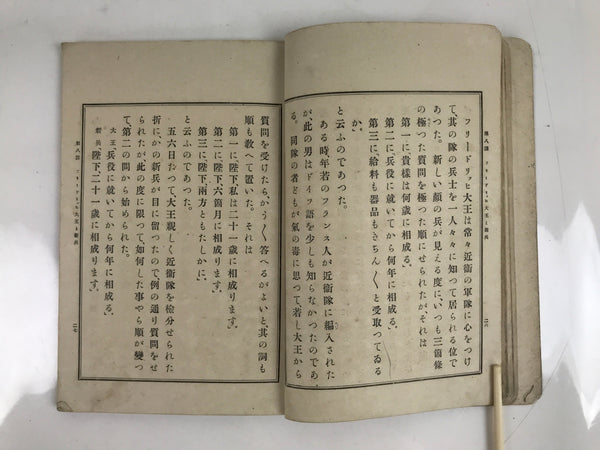 第八話 フリードリッヒ大王と新兵
二六
フリードリッヒ大王は常々近衛の軍隊に心をつけ
て、其の隊の兵士を一人々々に知つて居られる位で
あつた。新しい顔の兵が見える度に、いつも三箇條
の極つた質問を極つた順にせられたが、それは
第一に貴様は何歳に相成る、
第二に兵役に就いてから何年に相成る、
第三に給料も器品もきちん〱と受取つてゐる
か、
と云ふのであつた。
ある時年若のフランス人が近衛隊に編入された
が、此の男はドイツ語を少しも知らなかつたのであ
る。同隊の者どもが氣の毒に思つて、若し大王から
質問を受けたら、かう〱答へるがよいと、其の詞も
順も敎へて置いた。それは
第一に陛下私は二十一歳に相成ります、
第二に陛下六箇月に相成ります、
第三に陛下兩方ともたしかに、
と云ふのであつた。
五六日たつて、大王親しく近衛隊を檢分せられた
折に、かの新兵が目に留つたので例の通り質問をせ
られたが此の度に限つて、如何した事やら順が變つ
て、第二の問から始められた。
大王「兵役に就いてから何年に相成る、
新兵「陛下、二十一歳に相成ります、
第八話 フリードリッヒ大王と新兵
二七